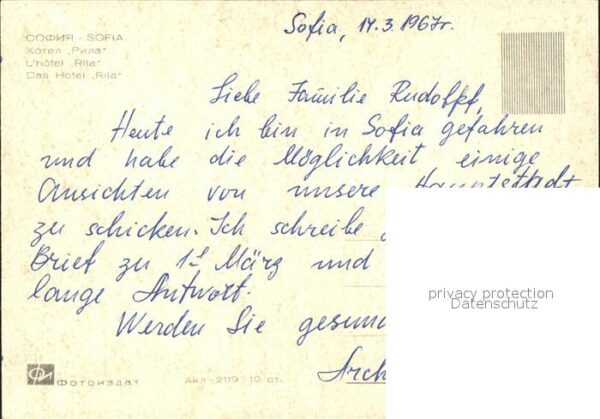 Sofia, 14.3.1967г.
СОФИЯ - SOFIA
Хотел „Рила“
L'hôtel „Rila“
Das Hotel „Rila“
Liebe Familie Rudolpf,
Heute ich bin in Sofia gefahren
und habe die Möglichkeit einige
Ansichten von unsere Hauptstadt
zu schicken. Ich schreibe
Brief zu 1st März und
lange Antwort.
Werden Sie gesund
Arch
privacy protection
Datenschutz
Фотоиздат
Акл-2119 10 ст.